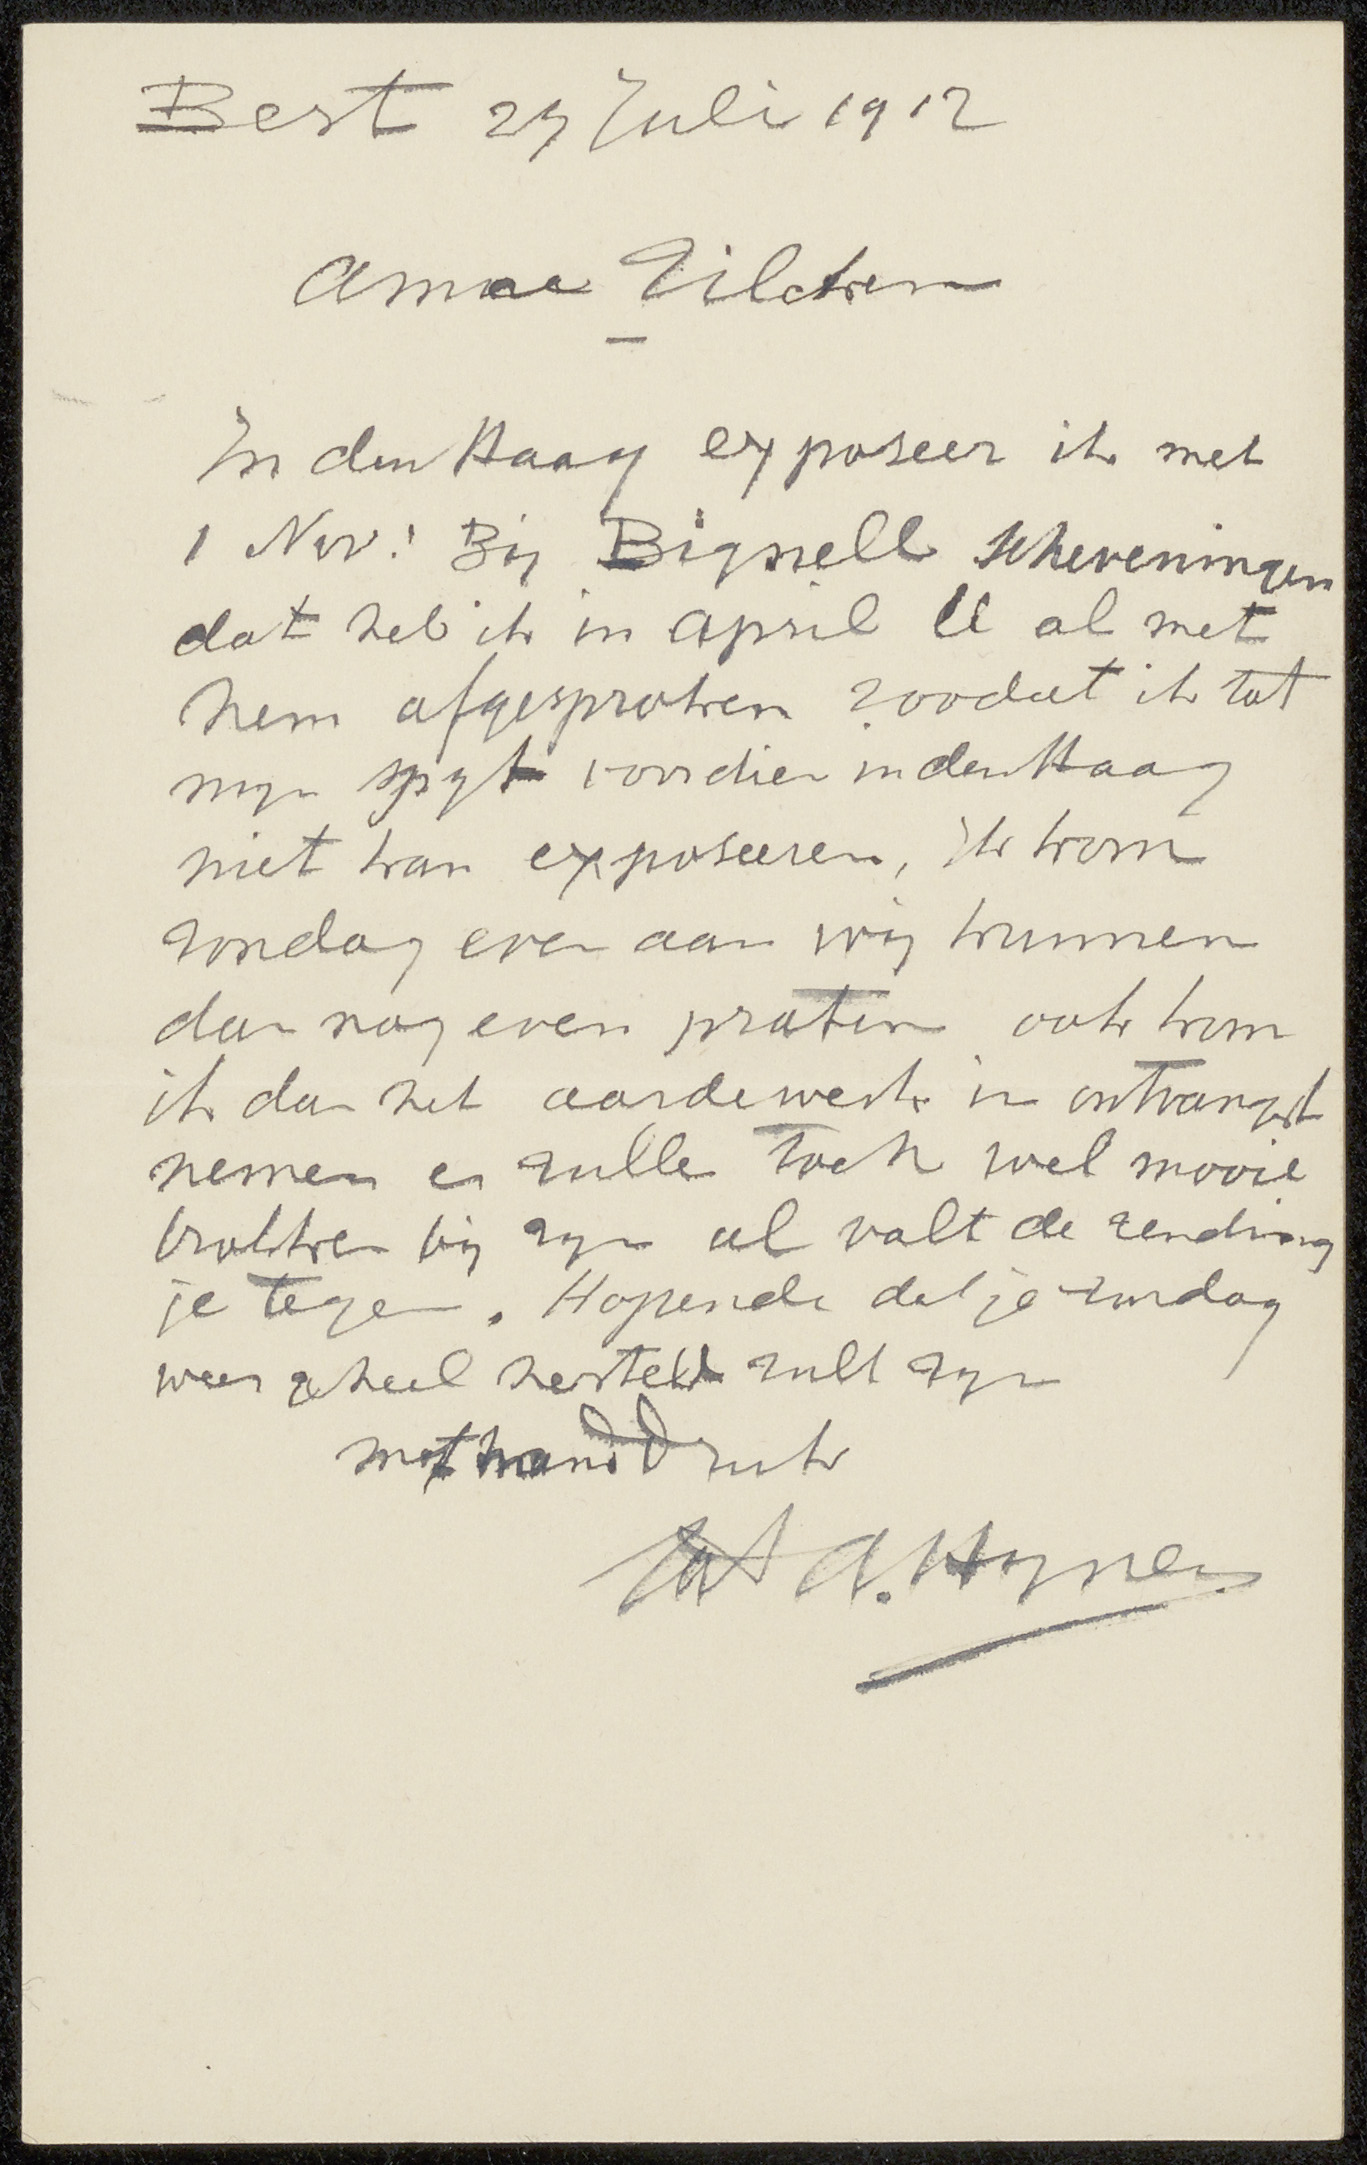 Best 27 Juli 1912
Amice Zilcken
In den Haag exposeer ik met
1 Nov: Bij Bignell Scheveningen
dat heb ik in April ll al met
hem afgesproken zoodat ik tot
myn spyt voordien in den Haag
niet kan exposeeren, Ik kom
zondag even aan wij kunnen
dan nog even praten ook kom
ik dan het aardewerk in ontvangst
nemen er zulle toch wel mooie
brokken bij zyn al valt de zending
je tegen. Hopende dat je zondag
weer geheel hersteld zult zyn
met handdruk
tat A. Hynen